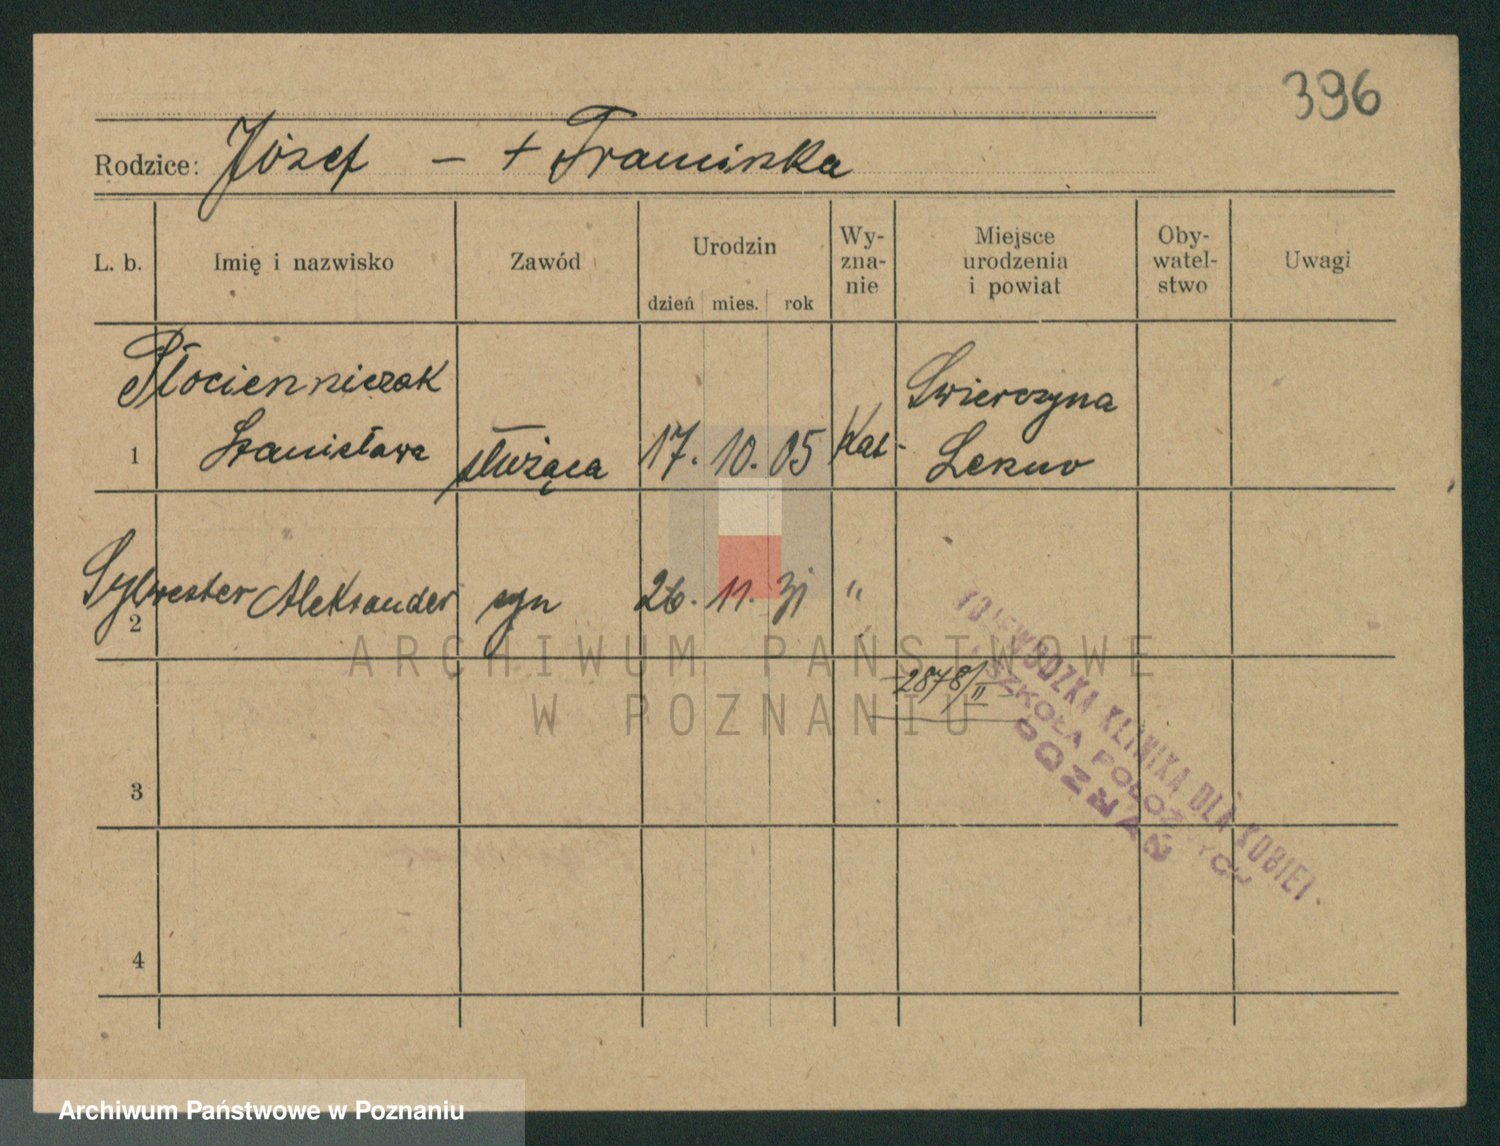 396
Rodzice: Józef - + Franciszka
L. b. Imię i nazwisko Zawód Urodzin dzień mies. rok Wy-zna-nie Miejsce urodzenia i powiat Oby-watel-stwo Uwagi
Płocienniczak Swierczyna
1 Stanisława służąca 17. 10. 05 Kat. Leszno
2 Sylwester Aleksander syn 26. 11. 31 "
2878/II
WOJEWÓDZKA KLINIKA DLA KOBIET
I SZKOŁA POŁOŻNYCH
POZNAŃ
3
4
ARCHIWUM PAŃSTWOWE
W POZNANIU
Archiwum Państwowe w Poznaniu